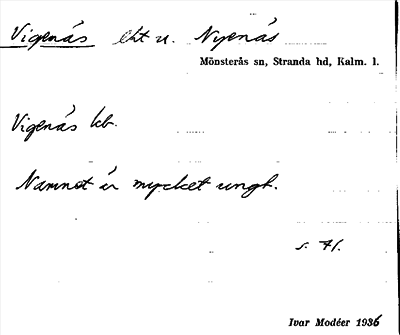 Vigenäs lht u. Nyenäs
Mönsterås sn, Stranda hd, Kalm. l.
Vigenäs kb.
Namnet är mycket ungt.
s. 71.
Ivar Modéer 1936